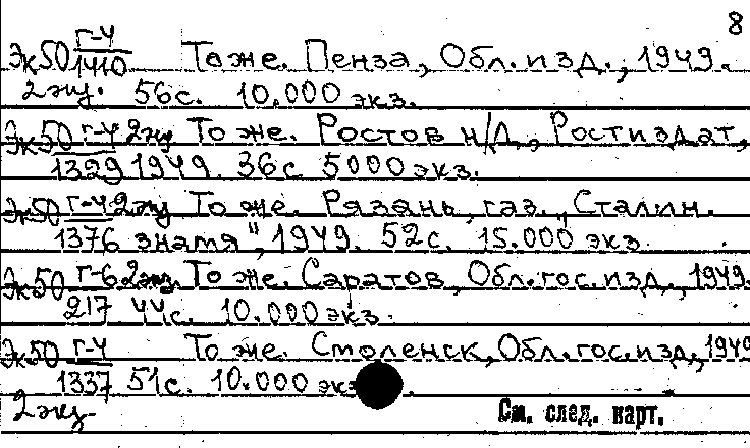 8
Эк50 Г-4/1410 То же. Пенза, Обл. изд., 1949.
2 экз. 56 с. 10.000 экз.
Эк50 Г-4 2 экз То же. Ростов н/Д., Ростиздат,
1329 1949. 36 с 5000 экз.
Эк50 Г-4 2 экз То же. Рязань, газ. „Сталин.
1376 знамя", 1949. 52 с. 15.000 экз.
Эк50 Г-6 2 экз. То же. Саратов, Обл. гос. изд., 1949.
217 44 с. 10.000 экз.
Эк50 Г-4 То же. Смоленск, Обл. гос. изд., 1949
1337 51 с. 10.000 экз.
2 экз
См. след. карт.